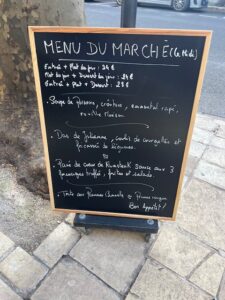 MENU DU MARCHÉ (Le Midi)
Entrée + Plat du jour : 24 €
Plat du jour + Dessert du jour : 24 €
Entrée + Plat + Dessert : 28 €
. Soupe de poissons, croûtons, emmental rapé,
rouille maison
. Dos de Julienne, coulis de et
fricassé de légumes.
ou
. Pavé de coeur de Rumsteak sauce aux 3
fromages truffée, frites et salade
. Tarte aux Pommes Cannelle & Prunes rouges
Bon Appétit !